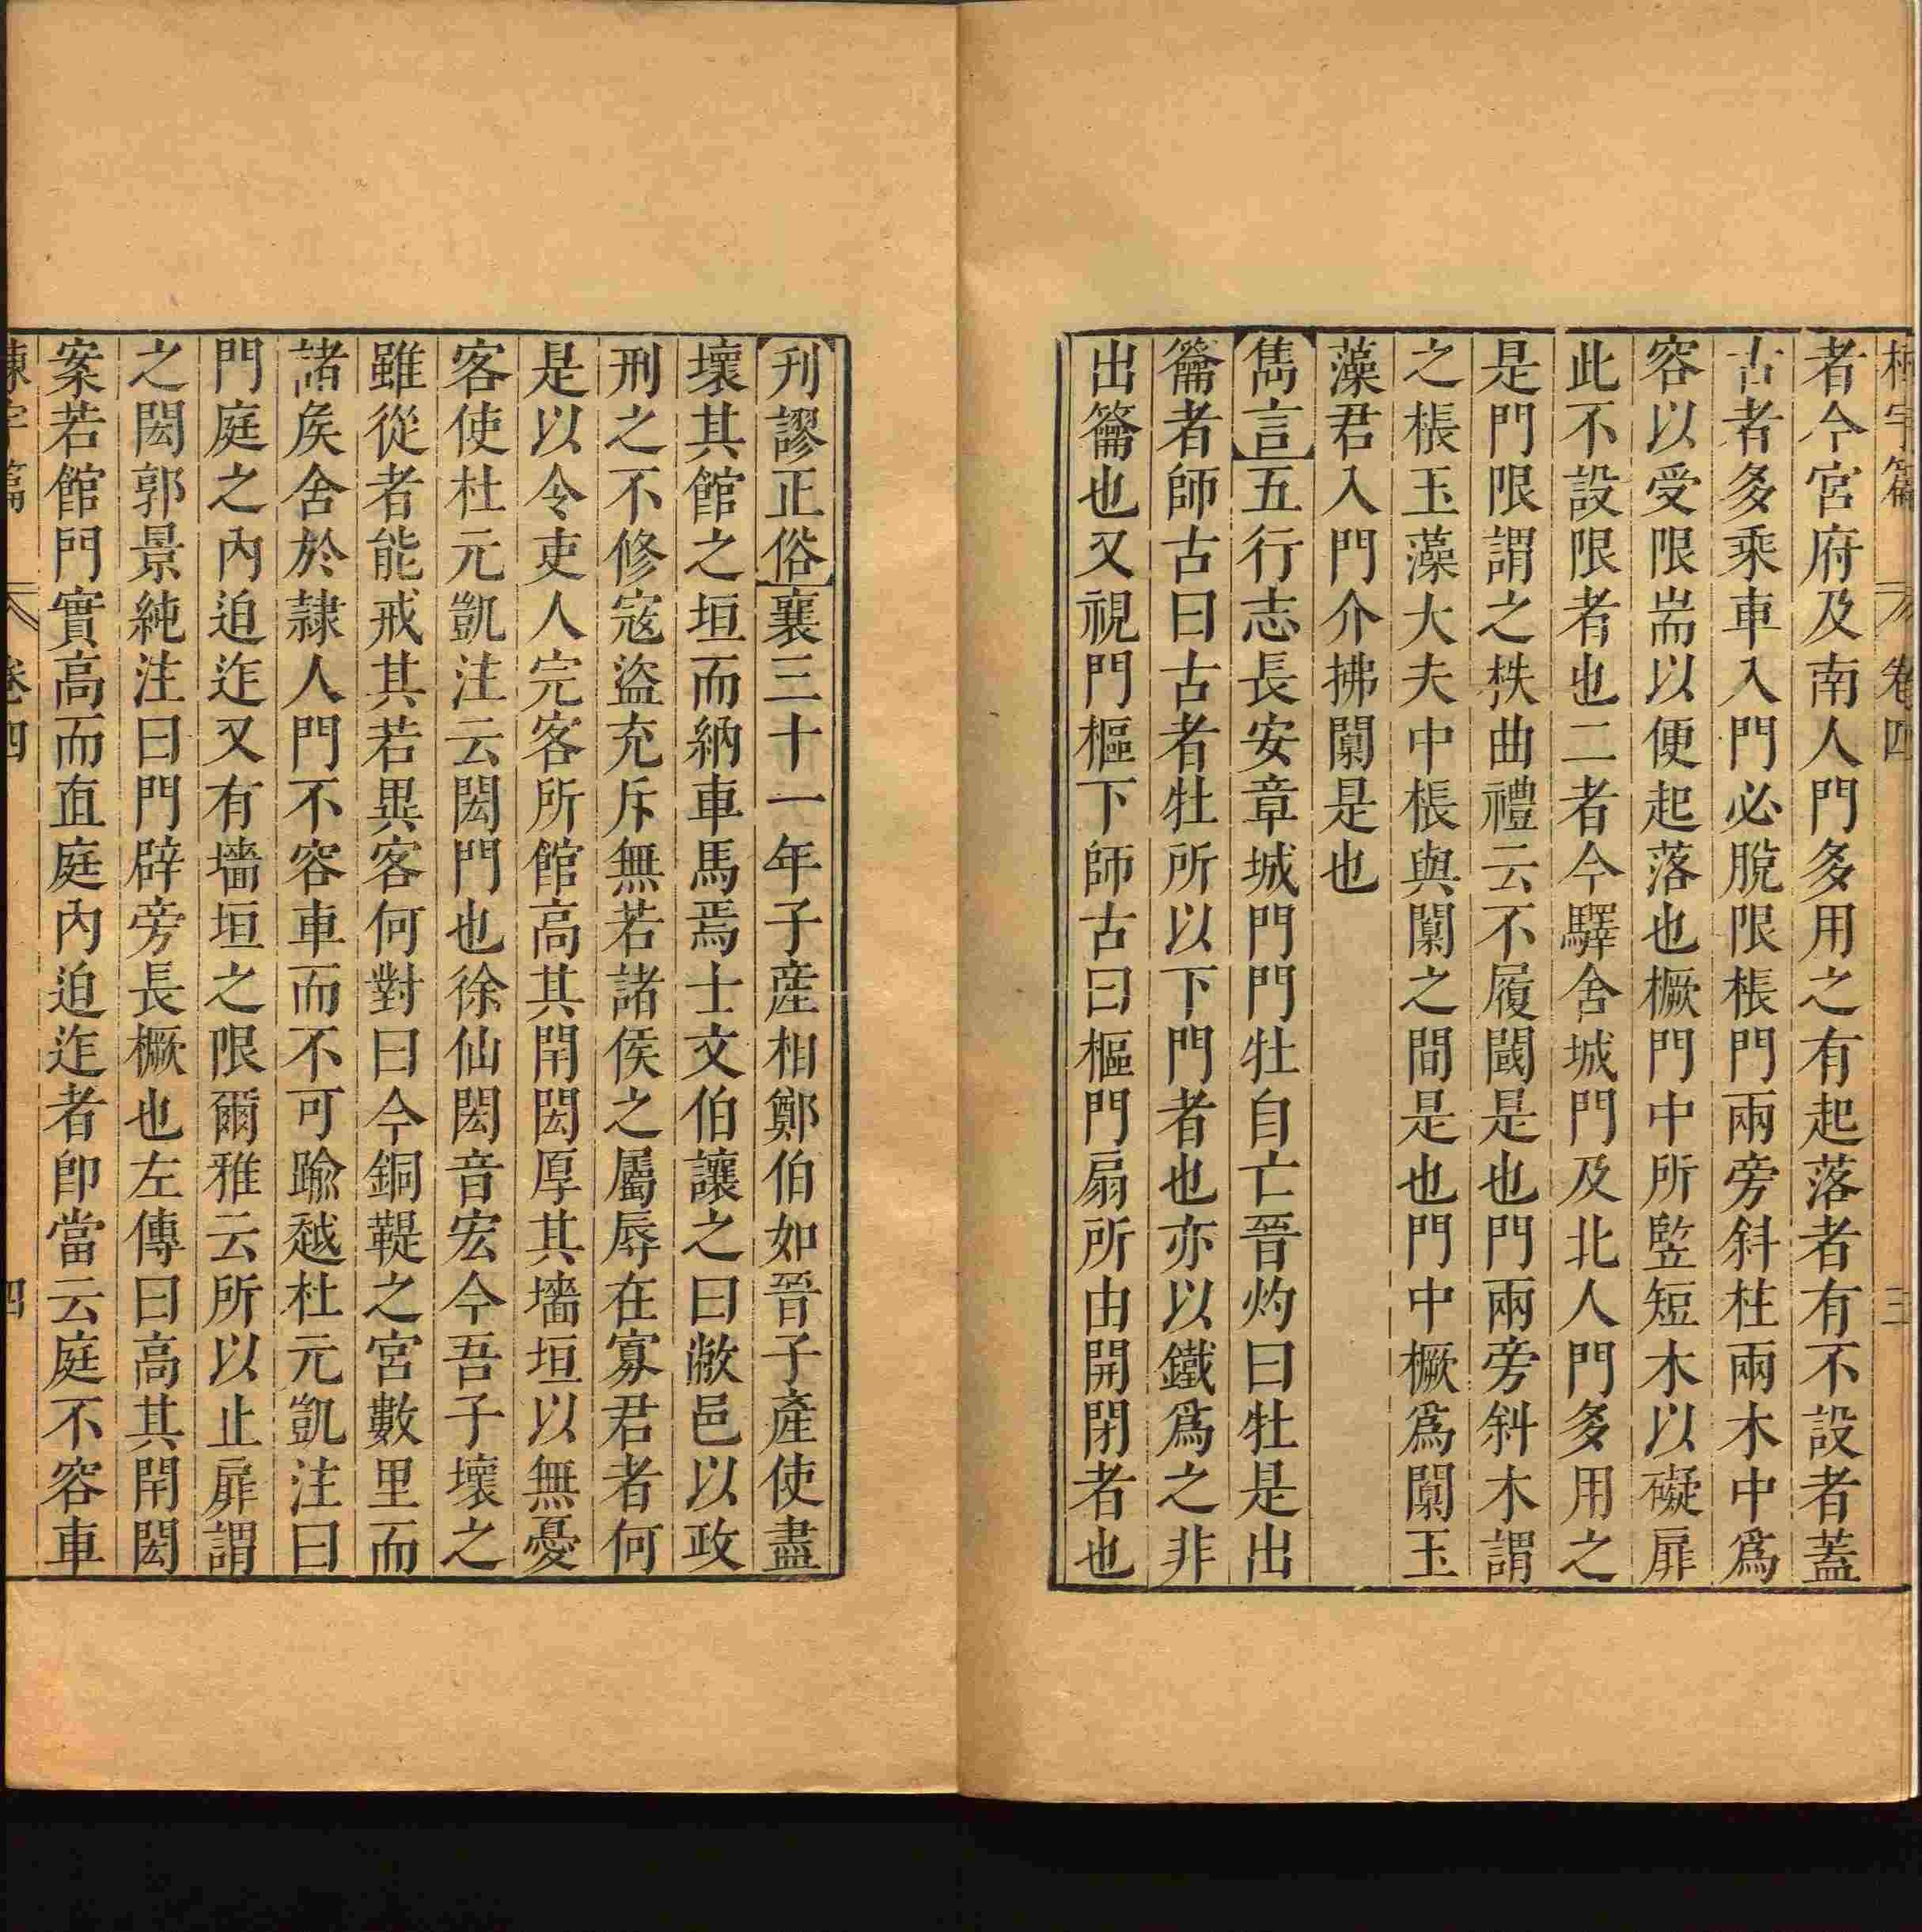 棟宇篇 卷四 三
者今宮府及南人門多用之有起落者有不設者葢
古者多乘車入門必脫限棖門兩旁斜柱兩木中爲
容以受限耑以便起落也橛門中所竪短木以礙扉
此不設限者也二者今驛舍城門及北人門多用之
是門限謂之柣曲禮云不履閾是也門兩旁斜木謂
之棖玉藻大夫中棖與闑之間是也門中橛爲闑玉
藻君入門介拂闑是也
雋言五行志長安章城門門牡自亡晉灼曰牡是出
籥者師古曰古者牡所以下門者也亦以鐵爲之非
出籥也又視門樞下師古曰樞門扇所由開閉者也
刋謬正俗襄三十一年子産相鄭伯如晉子產使盡
壞其館之垣而納車馬焉士文伯讓之曰敝邑以政
刑之不修寇盜充斥無若諸侯之屬辱在寡君者何
是以令吏人完客所館高其閈閎厚其墻垣以無憂
客使杜元凱注云閎門也徐仙閎音宏今吾子壞之
雖從者能戒其若異客何對曰今銅鞮之宮數里而
諸矦舍於隷人門不容車而不可踰越杜元凱注曰
門庭之內迫迮又有墻垣之限爾雅云所以止扉謂
之閎郭景純注曰門辟旁長橛也左傳曰高其閈閎
案若館門實高而直庭內迫迮者卽當云庭不容車
棟宇篇 卷四 四